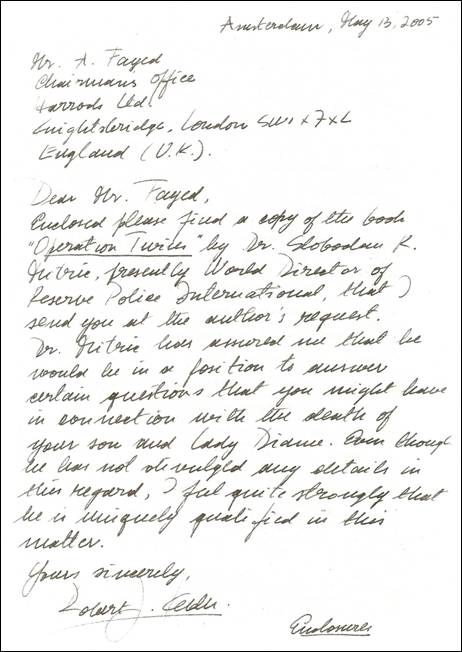 Amsterdam, May 13, 2005
Mr. A. Fayed
Chairmans Office
Harrods Ltd.
Knightsbridge, London SW1X7XL
England (U.K.).
Dear Mr. Fayed,
Enclosed please find a copy of the book
"Operation Twins" by Dr. Slobodan R.
Mitric, presently World Director of
Reserve Police International, that I
send you at the author's request.
Dr. Mitric has assured me that he
would be in a position to answer
certain questions that you might have
in connection with the death of
your son and Lady Diane. Even though
he has not devulged any details in
this regard, I feel quite strongly that
he is uniquely qualified in this
matter.
Yours sincerely,
Robert J.
Enclosures